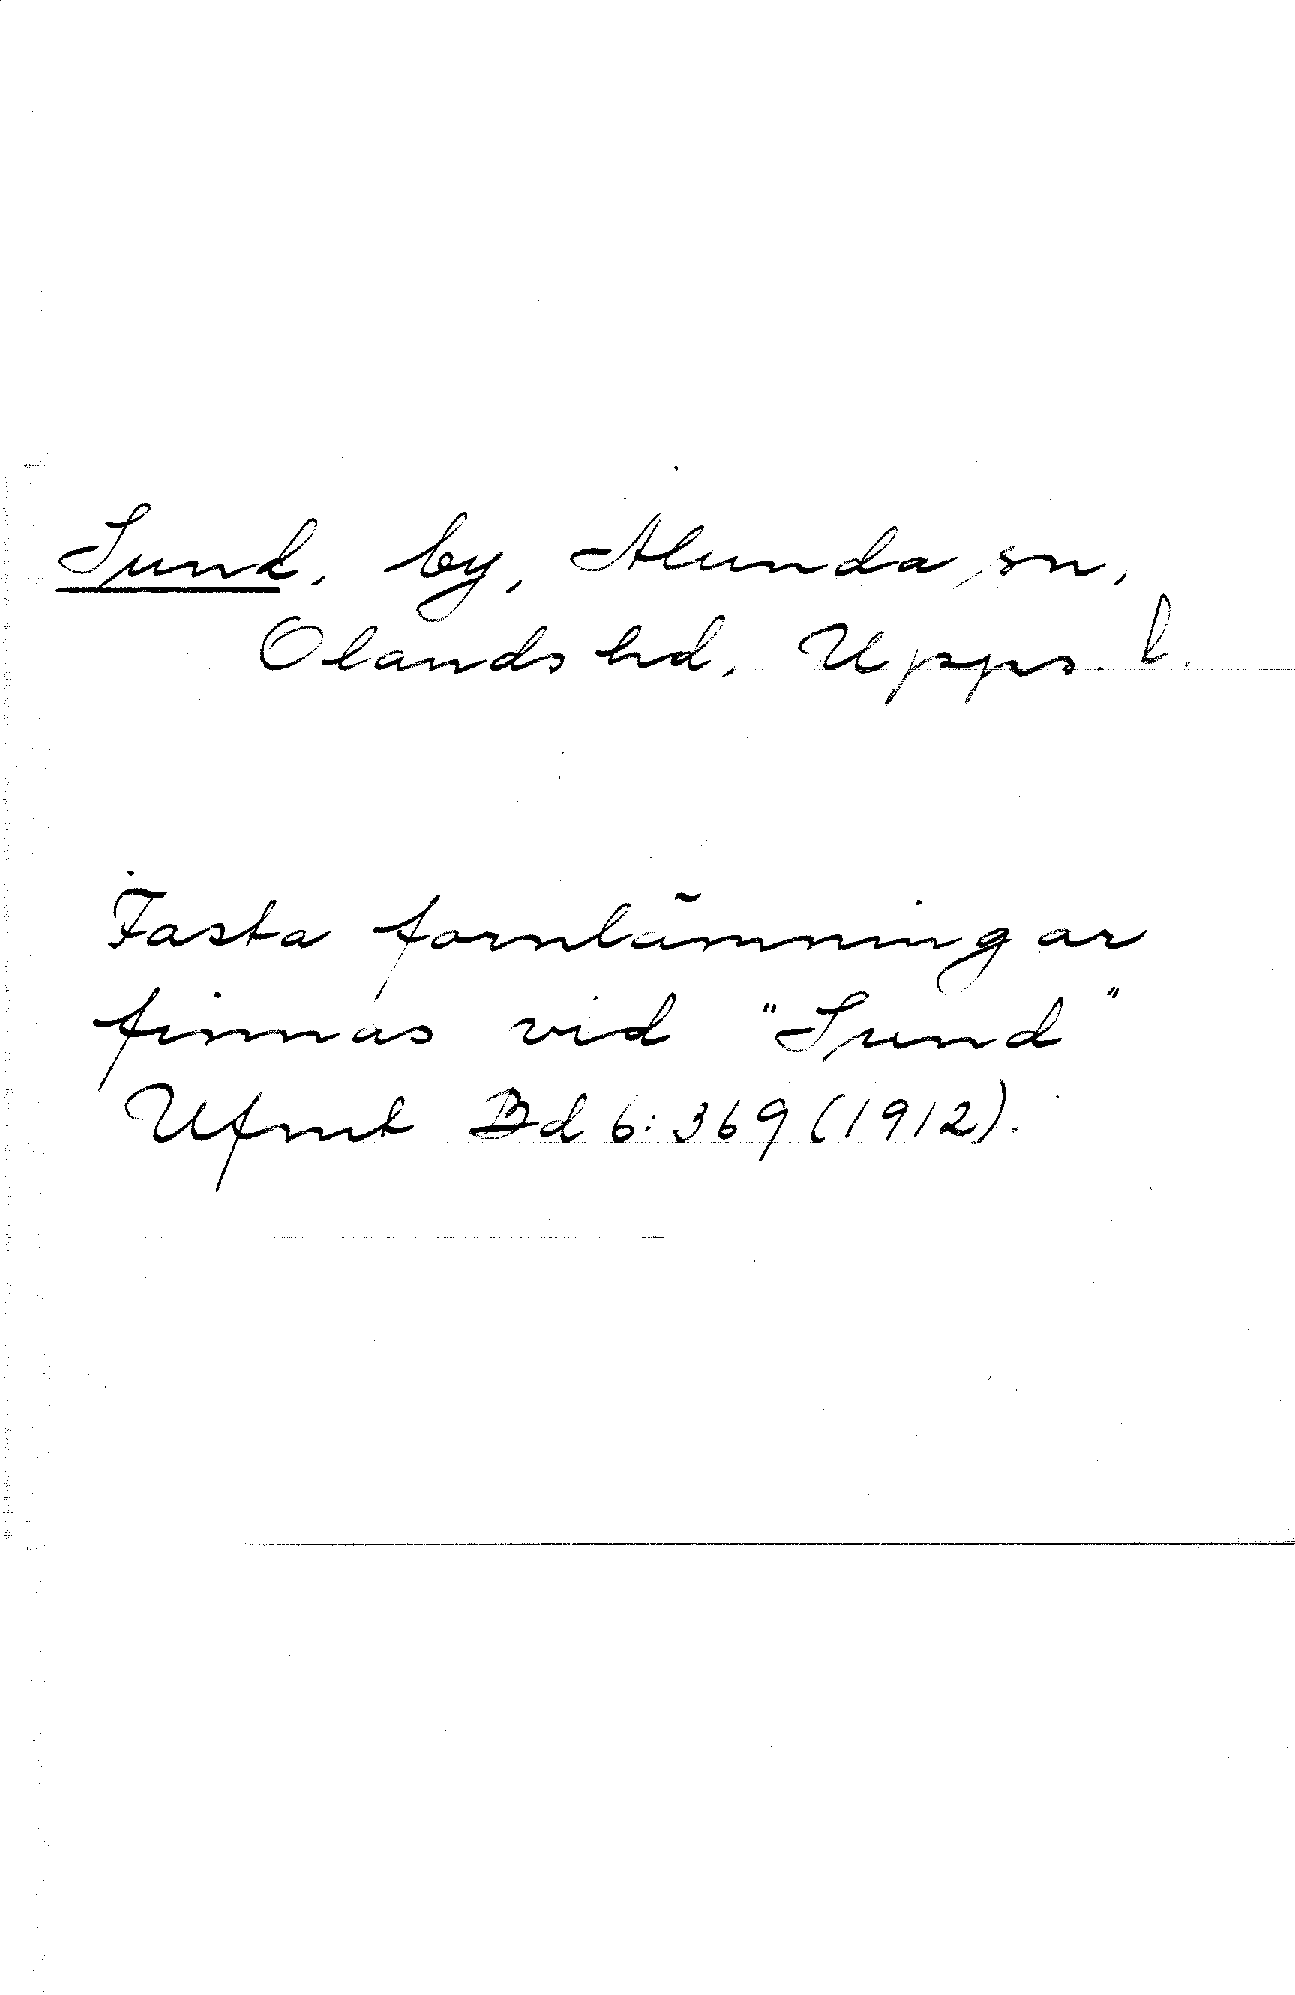 Sund, by, Alunda sn,
Olands hd, Upps. l.
Fasta fornlämningar
finnas vid "Sund"
Ufmt Bd 6: 369 (1912).